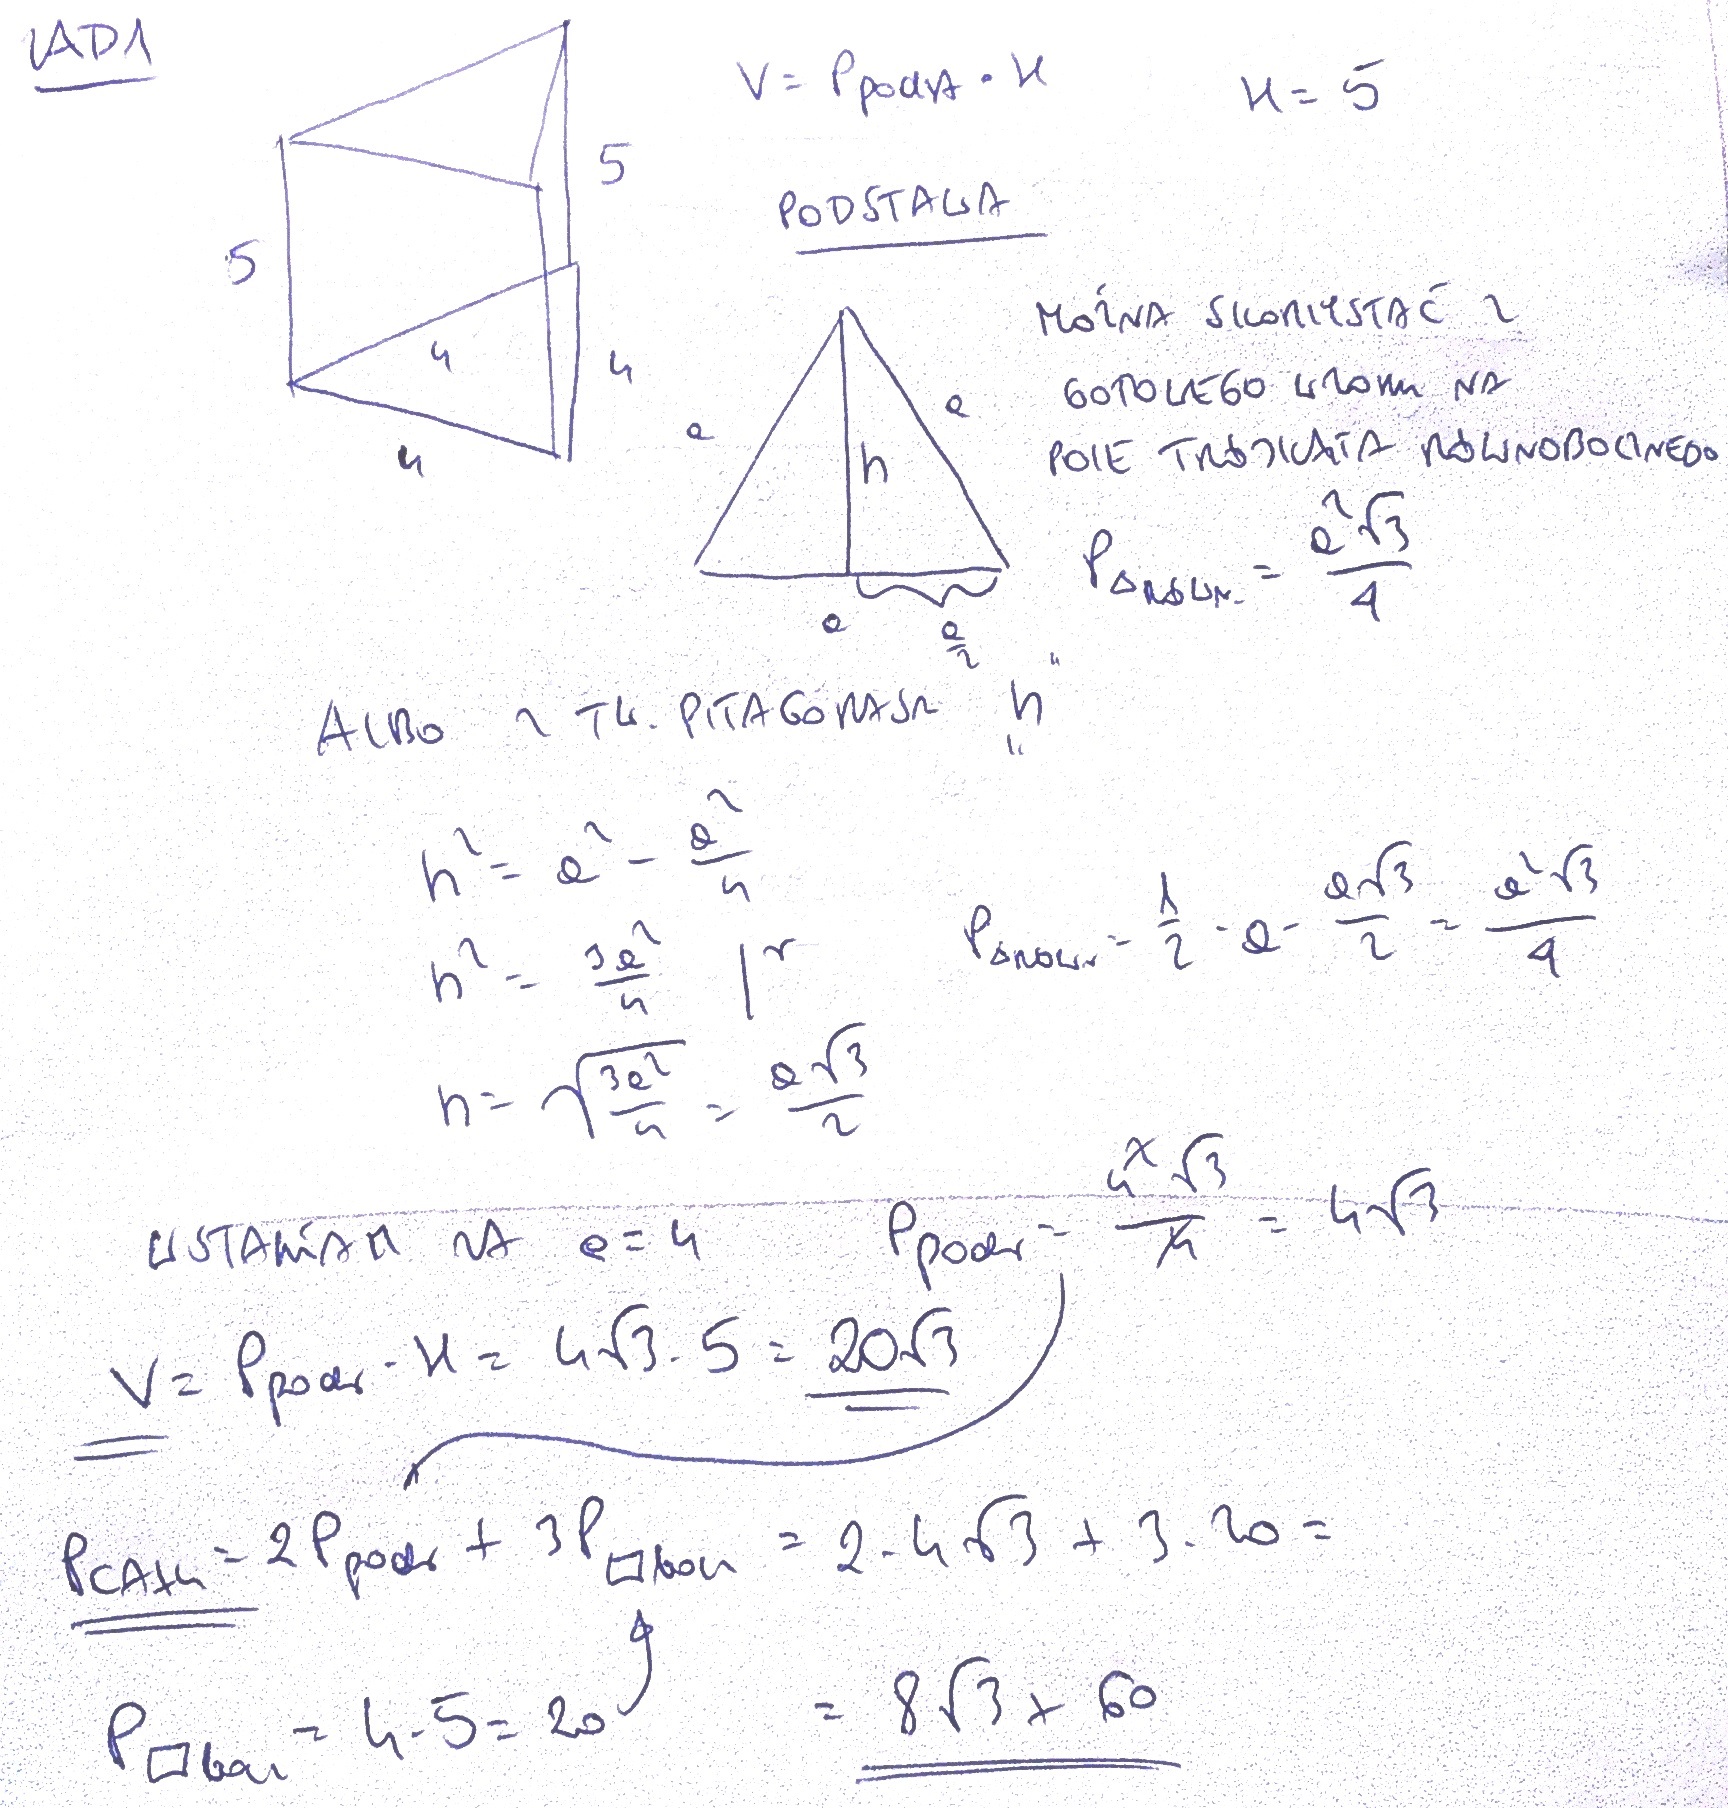 ZAD1
V = Ppodst · H   H = 5
5
5
4
4
4
PODSTAWA
a
a
h
a
a/2
MOŻNA SKORZYSTAĆ Z
GOTOWEGO WZORU NA
POLE TRÓJKĄTA RÓWNOBOCZNEGO
P△RÓWN. = a²√3/4
ALBO Z TW. PITAGORASA "h"
h² = a² - a²/4
h² = 3a²/4 |√
P△RÓWN = 1/2 · a · a√3/2 = a²√3/4
h = √(3a²/4) = a√3/2
WSTAWIAM ZA a = 4   Ppodst = 4²√3/4 = 4√3
V = Ppodst · H = 4√3 · 5 = 20√3
PCAŁK = 2Ppodst + 3P▭bok = 2·4√3 + 3·20 =
P▭bok = 4·5 = 20
= 8√3 + 60